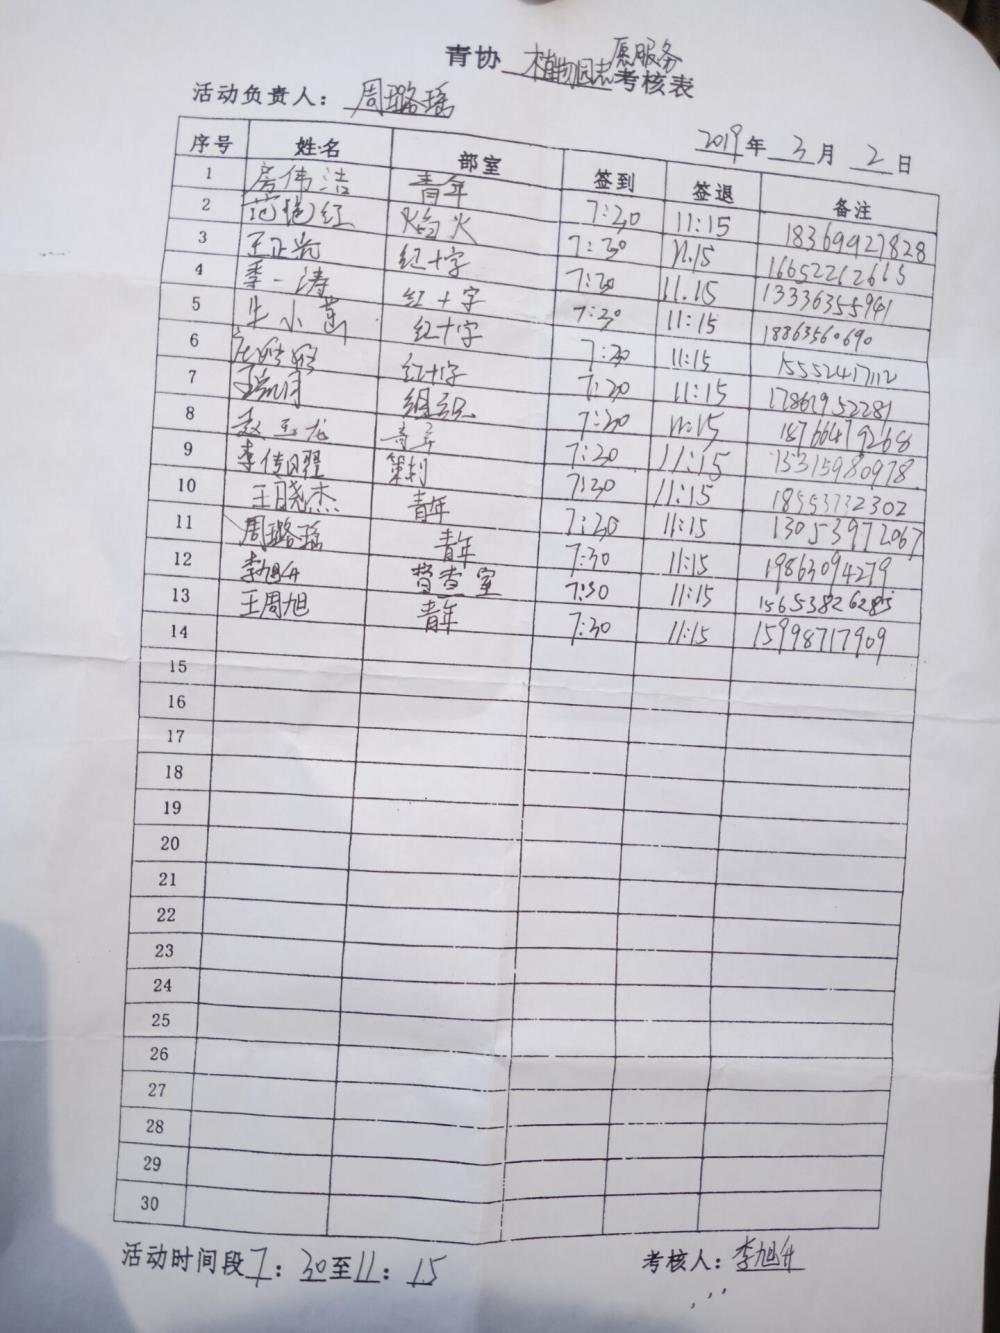 青协 植物园志愿服务 考核表
活动负责人： 周璐瑶
2019年 3月 2日
序号 姓名 部室 签到 签退 备注
1 房伟洁 青年 7:30 11:15 18369427828
2 范艳红 火焰火 7:30 11.15 16652262665
3 王正尧 红十字 7:30 11.15 13336355941
4 季一涛 红十字 7:30 11:15 18863560690
5 牛小菡 红十字 7:30 11:15 15552417112
6 红十字 7:30 11:15 17861952281
7 组织 7:30 11:15 18766479268
8 赵玉龙 青年 7:30 11:15 15315980978
9 李传曜 策划 7:30 11:15 18553732302
10 王晓杰 青年 7:30 11:15 13053972067
11 周璐瑶 青年 7:30 11:15 19863094279
12 李旭升 督查室 7:30 11:15 15653826285
13 王周旭 青年 7:30 11:15 15998717909
14
15
16
17
18
19
20
21
22
23
24
25
26
27
28
29
30
活动时间段 7：30至11：15 考核人：李旭升